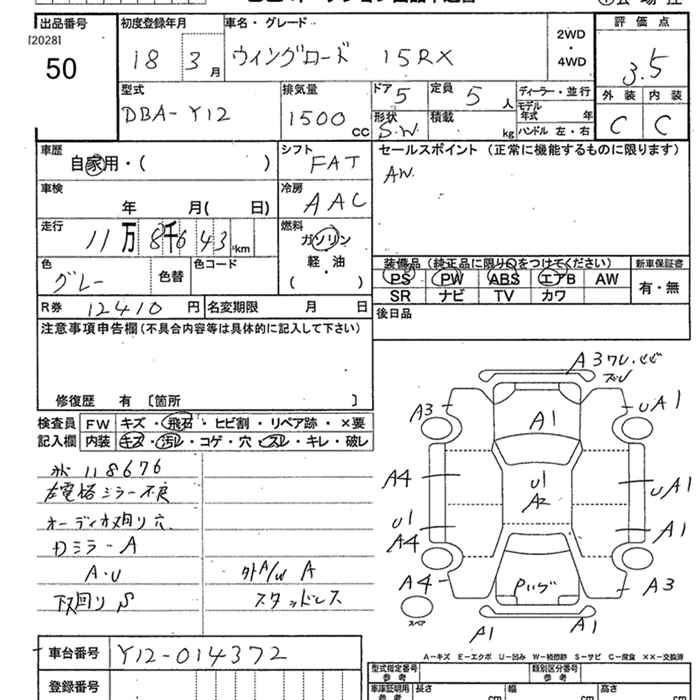 出品番号
[2028]
50
初度登録年月
18 3 月
車名・グレード
ウィングロード 15RX
2WD
・
4WD
評価点
3.5
外装 内装
C C
型式
DBA-Y12
排気量
1500 cc
ドア 5
定員 5 人
形状 S.W
積載 kg
ディーラー・並行
モデル年式 年
ハンドル 左・右
車歴
自家用・( )
シフト
FAT
セールスポイント (正常に機能するものに限ります)
AW
車検
年 月( 日)
冷房
AAC
走行
11万8千643 km
燃料
ガソリン
軽・油
( )
色
グレー
色替
色コード
装備品 (純正品に限り○をつけてください)
PS PW ABS エアB AW
SR ナビ TV カワ
新車保証書
有・無
R券 12410 円
名変期限 月 日
後日品
注意事項申告欄(不具合内容等は具体的に記入して下さい)
修復歴 有 〔箇所 〕
検査員
記入欄
FW キズ・飛石・ヒビ割・リペア跡・×要
内装 キズ・汚レ・コゲ・穴・スレ・キレ・破レ
118676
左電格ミラー不良
オーディオ廻り穴
ミラーA
A・U
外A/W A
下廻りS
スタッドレス
A3 ワレ
ズレ
A3
UA1
A1
A4
U1
A2
UA1
U1
A4
A1
A4
A3
スペア
A1
A1
A-キズ E-エクボ U-凹み W-補修跡 S-サビ C-腐食 ××-交換済
車台番号
Y12-014372
登録番号
型式指定番号
参考
類別区分番号
参考
車庫証明用
参考
長さ cm
幅 cm
高さ cm